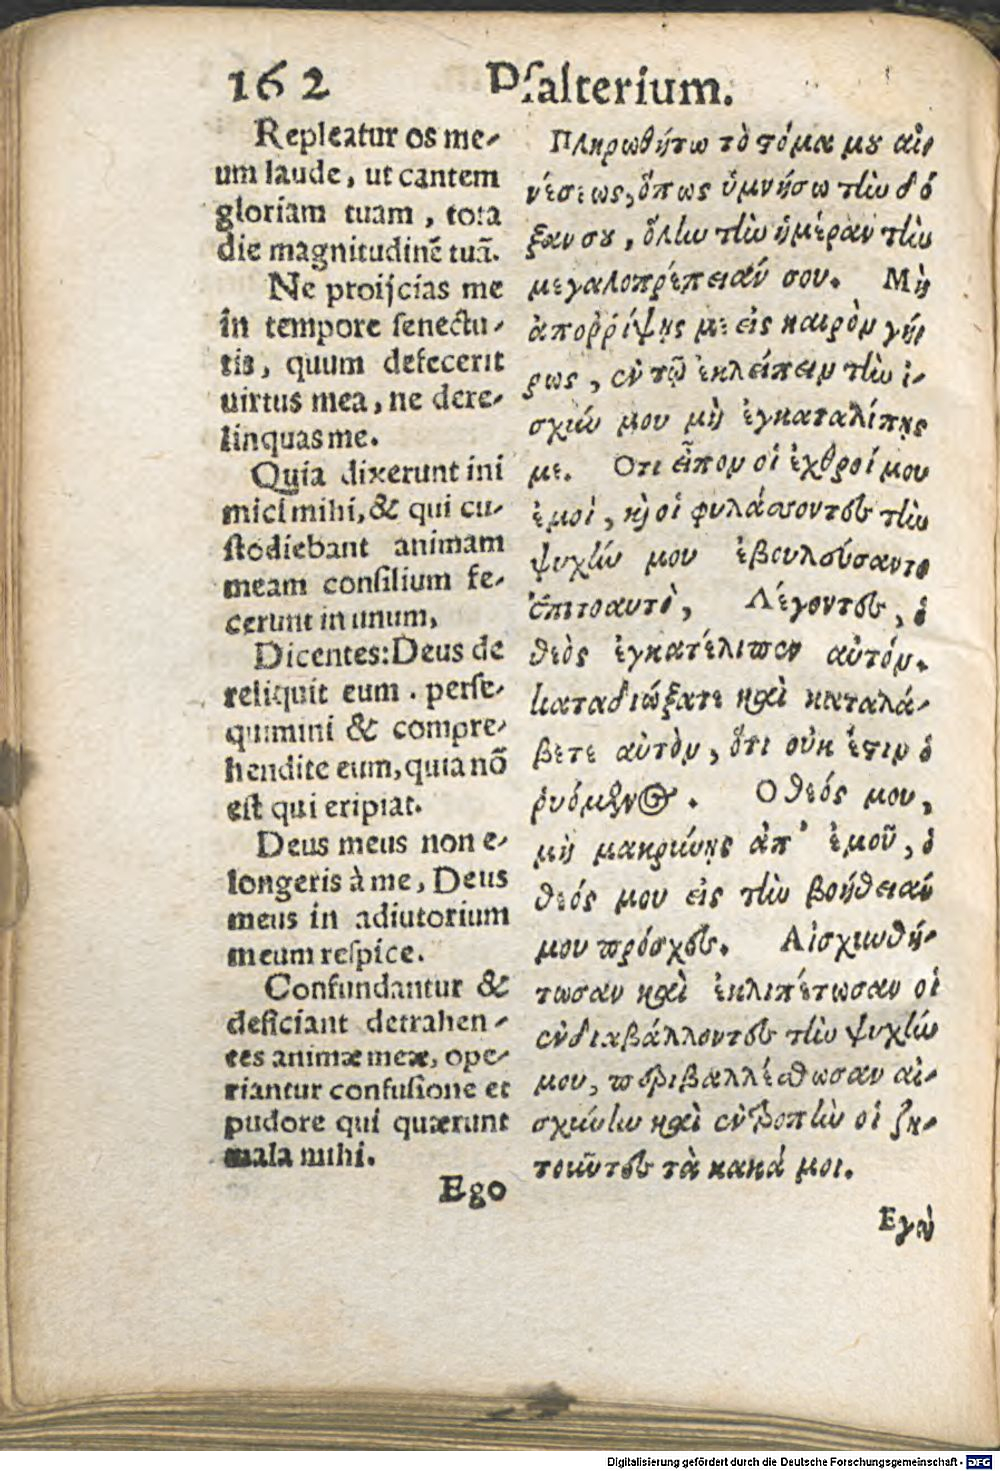 162 Psalterium.
Repleatur os me-
um laude, ut cantem
gloriam tuam, tota
die magnitudinē tuā.
Ne proijcias me
in tempore senectu-
tis, quum defecerit
uirtus mea, ne dere-
linquas me.
Quia dixerunt ini
mici mihi, & qui cu-
stodiebant animam
meam consilium fe-
cerunt in unum,
Dicentes: Deus de
reliquit eum. perse-
quimini & compre-
hendite eum, quia nō
est qui eripiat.
Deus meus non e-
longeris à me, Deus
meus in adiutorium
meum respice.
Confundantur &
deficiant detrahen-
tes animæ meæ, ope-
riantur confusione et
pudore qui quærunt
mala mihi.
Ego
Πληρωθήτω τὸ στόμα μου αἰ-
νέσεως, ὅπως ὑμνήσω τὴν δό
ξαν σου, ὅλην τὴν ἡμέραν τὴν
μεγαλοπρέπειάν σου. Μὴ
ἀποῤῥίψῃς με εἰς καιρὸν γή-
ρως, ἐν τῷ ἐκλείπειν τὴν ἰ-
σχύν μου μὴ ἐγκαταλίπῃς
με. Οτι εἶπον οἱ ἐχθροί μου
ἐμοὶ, καὶ οἱ φυλάσσοντες τὴν
ψυχήν μου ἐβουλεύσαντο
ἐπιτοαυτὸ, Λέγοντες, ὁ
θεὸς ἐγκατέλιπεν αὐτόν.
καταδιώξατε καὶ καταλά-
βετε αὐτὸν, ὅτι οὐκ ἔστιν ὁ
ῥυόμενος. Ο θεός μου,
μὴ μακρύνῃς ἀπ' ἐμοῦ, ὁ
θεός μου εἰς τὴν βοήθειάν
μου πρόσχες. Αἰσχυνθή-
τωσαν καὶ ἐκλιπέτωσαν οἱ
ἐνδιαβάλλοντες τὴν ψυχήν
μου, περιβαλλέσθωσαν αἰ-
σχύνην καὶ ἐντροπὴν οἱ ζη-
τοῦντες τὰ κακά μοι.
Εγὼ
Digitalisierung gefördert durch die Deutsche Forschungsgemeinschaft - DFG